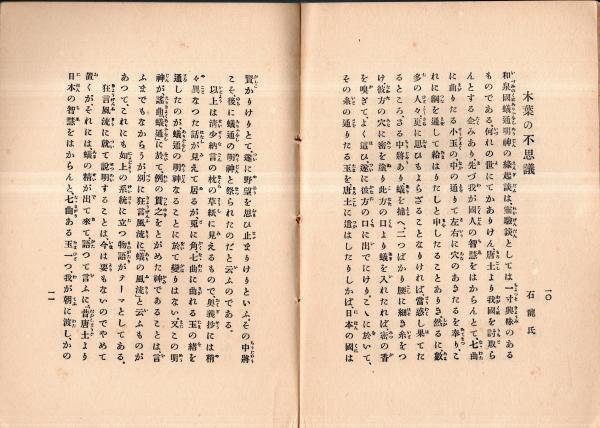 木葉の不思議
石龍氏
和泉國蟻通明神の縁起談は靈驗談としては一寸興味のある
ものである何れの世にてかありけん唐土より我國を討取ら
んとする企みあり先づ我が國人の智慧をはからんとて、七曲
に曲りたる小玉の中の通りて左右に穴のあきたるを奉り、こ
れに綱を通して給はりたしと申したることありき然るに數
多の人々更に思ひもよらざることなりければ當惑し果てた
るところ、さる中將あり蟻を捕へ、二つばかり腰に細き糸をつ
け彼方の穴に密を塗り此方の口より蟻を入れたれば密の香
を嗅ぎてよく這ひ遂に彼方の口に出でにけりこゝに於いて、
その糸の通りたる玉を唐土に遣はしたりしかば、日本の國は
一〇
賢かりけりとて、遂に野望を思ひ止まりけりといふ。その中將
こそ後に蟻通の明神と祭られたのだと云ふのである。
以上は清少納言の枕の草紙に見えるもので、奥義抄には稍
々異なつた話が見えて居るが兎に角七曲に曲れる玉の緒を
通したのが蟻通の明神なることに於て變りはない又この明
神が謠曲蟻通』にて、例の貫之をとがめた神であることは、言
ふまでもなからうが別に『狂言風流に蟻の風流』と云ふものが
あつて、これにも如上の系統に立つ物語がテーマとしてある。
狂言風流に就て説明することは、今は要もないのでやめて
置くがそれには蟻の精が出て來て語つて言ふに昔唐土より
日本の智慧をはからんと、七曲ある玉一つ我が朝に渡しかの
一一